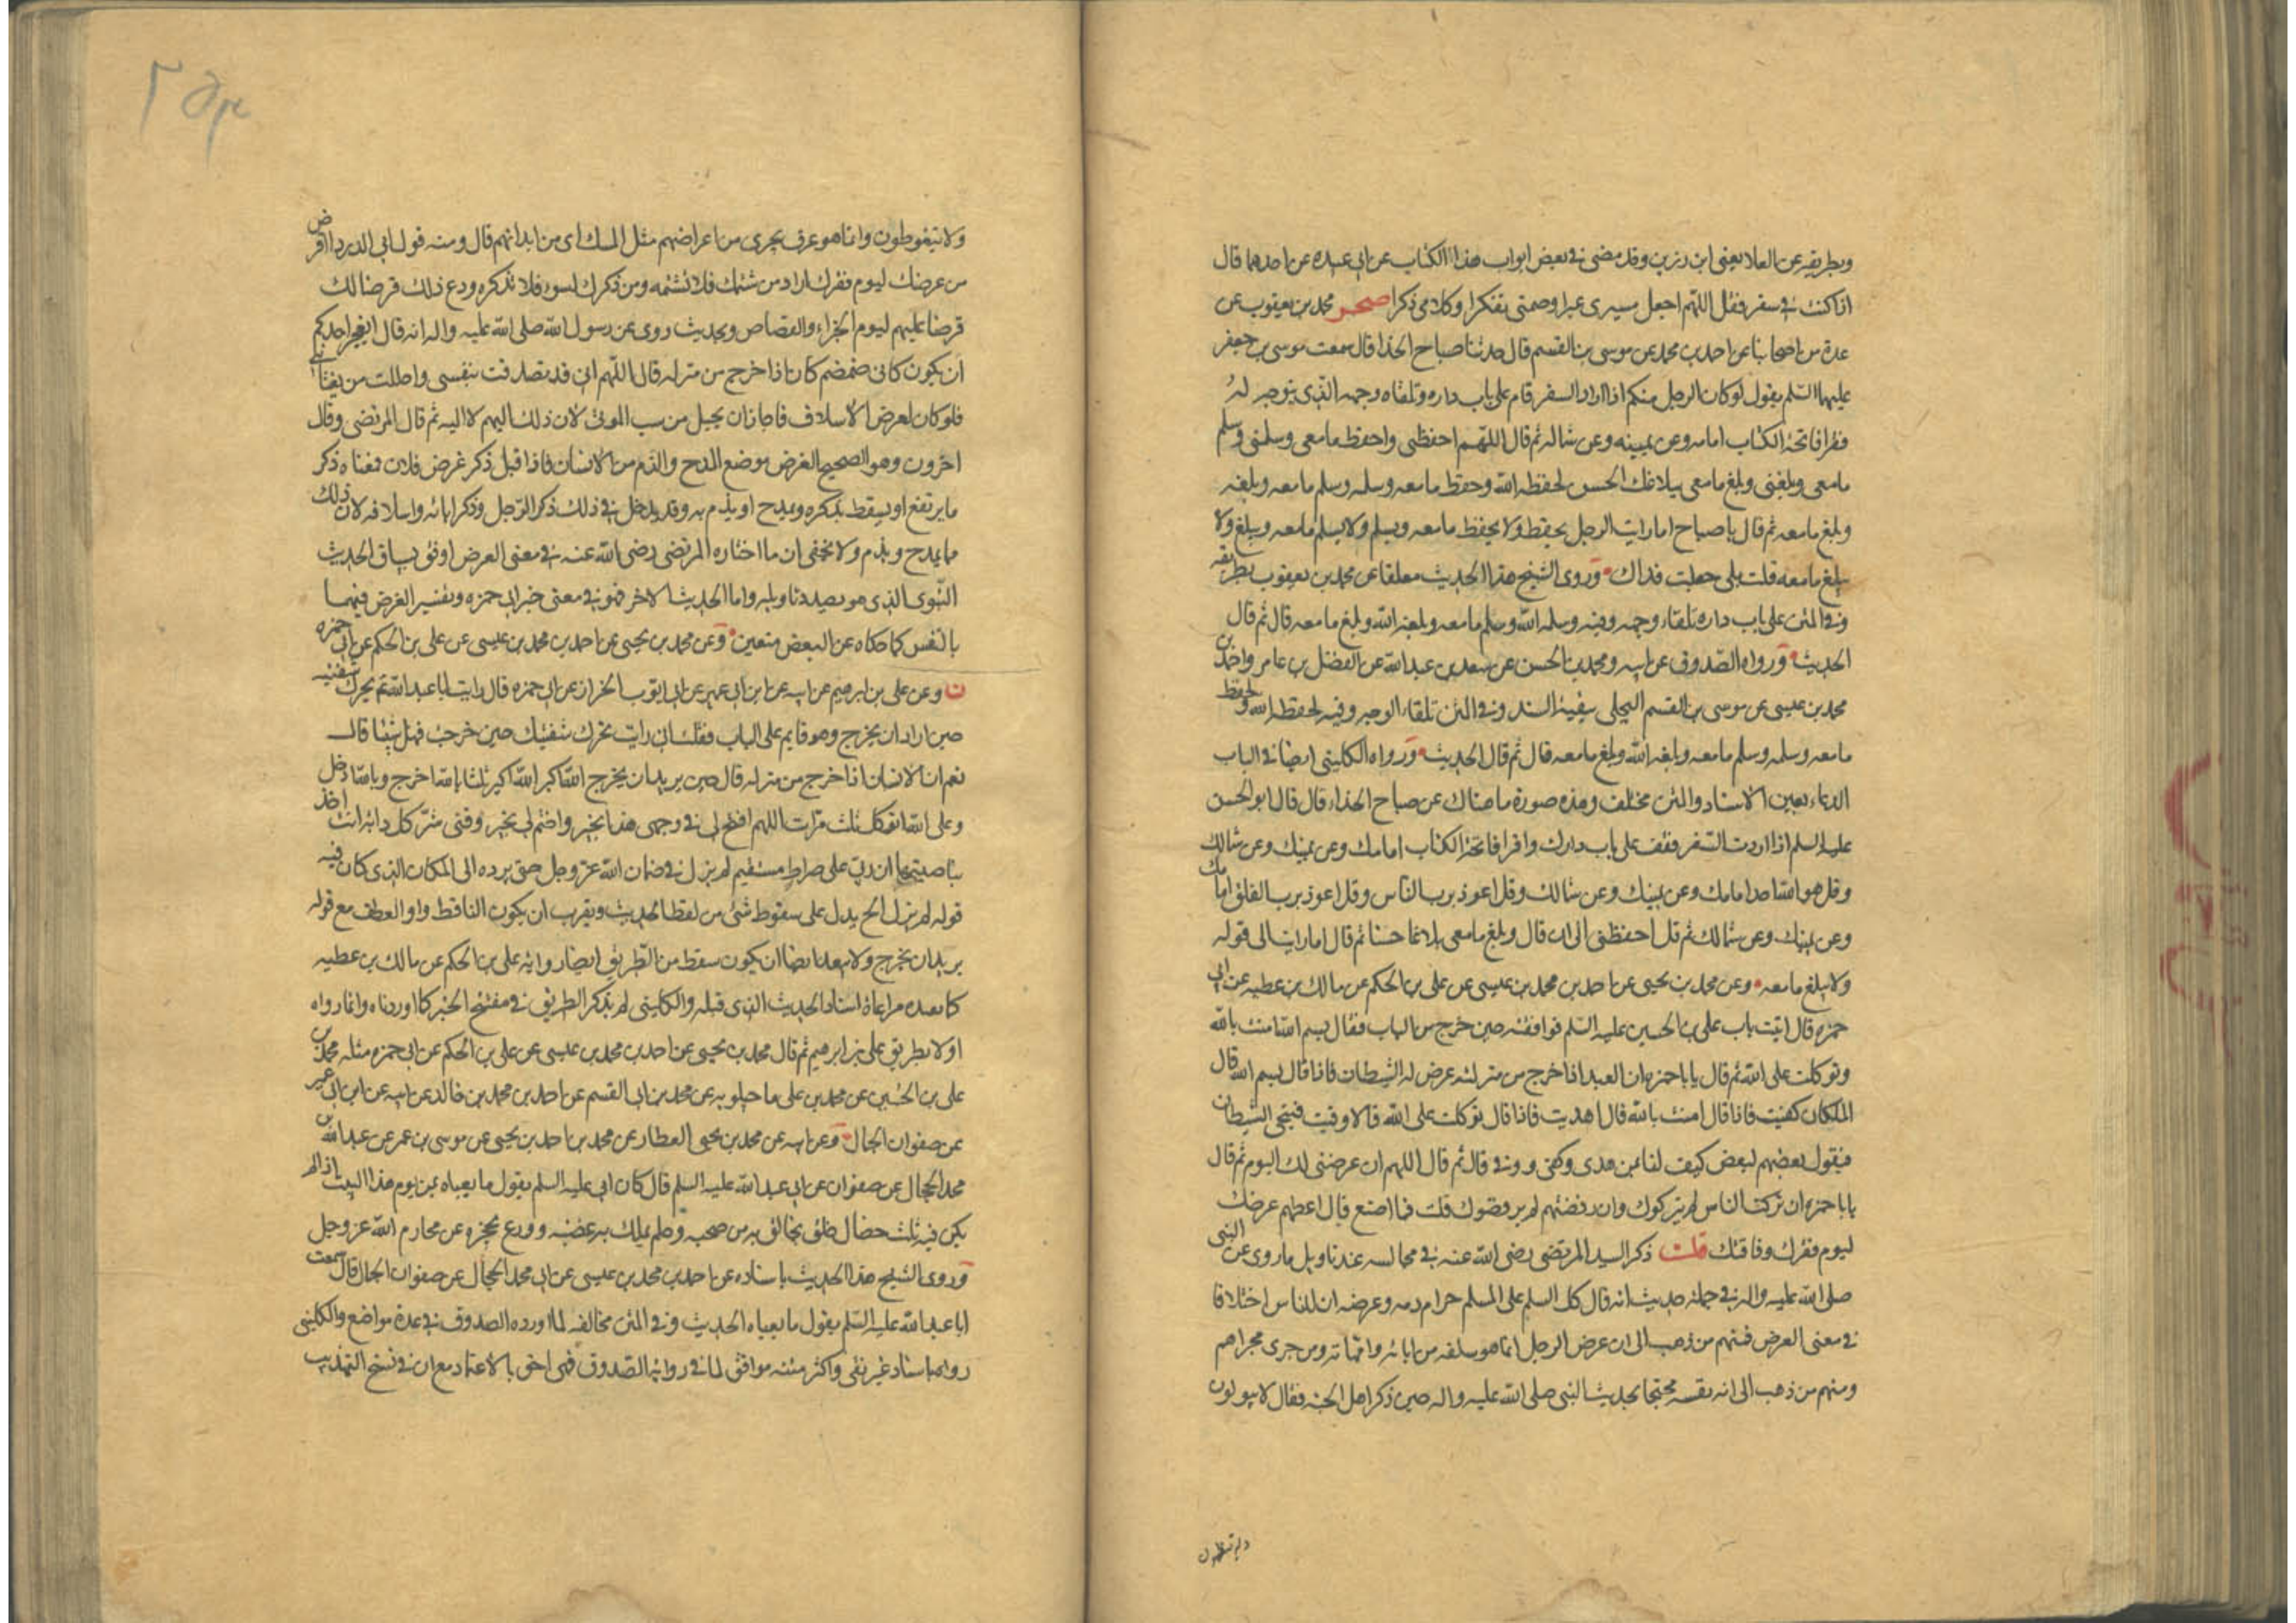 وبطريقه عن العلا يعنى ابن رزين وقد مضى فى بعض ابواب هذا الكتاب عن ابى عبيده عن احدهما قال
اذا كنت فى سفر فقل اللهم اجعل مسيرى عبرا وصمتى تفكرا وكلامى ذكرا صحر محمد بن يعقوب عن
عدة من اصحابنا عن احمد بن محمد عن موسى بن القسم قال حدثنا صباح الحذا قال سمعت موسى بن جعفر
عليهما السلم يقول لو كان الرجل منكم اذا اراد السفر قام على باب داره وتلقاه وجهه الذى يتوجه له
فقرا فاتحة الكتاب امامه وعن يمينه وعن شماله ثم قال اللهم احفظنى واحفظ ما معى وسلمنى وسلم
ما معى وبلغنى وبلغ ما معى ببلاغك الحسن لحفظه الله وحفظ ما معه وسلمه وسلم ما معه وبلغه
وبلغ ما معه ثم قال يا صباح اما رايت الرجل يحفظ ولا يحفظ ما معه ويسلم ولا يسلم ما معه ويبلغ ولا
يبلغ ما معه قلت بلى جعلت فداك وروى الشيخ هذا الحديث معلقا عن محمد بن يعقوب بطريقه
وفى المتن على باب داره تلقاء وجهه وفيه وسلمه الله وسلم ما معه وبلغه الله وبلغ ما معه قال ثم قال
الحديث ورواه الصدوق عن ابيه ومحمد بن الحسن عن سعد بن عبد الله عن الفضل بن عامر واحمد بن
محمد بن عيسى عن موسى بن القسم البجلى ببقية السند وفى المتن تلقاء الوجه وفيه لحفظه الله ولحفظ
ما معه وسلمه وسلم ما معه وبلغه الله وبلغ ما معه قال ثم قال الحديث ورواه الكلينى ايضا فى الباب
الدعاء بعين الاسناد والمتن مختلف وهذه صورة ما هناك عن صباح الحذاء قال قال ابو الحسن
عليه السلم اذا اردت السفر فقف على باب دارك واقرا فاتحة الكتاب امامك وعن يمينك وعن شمالك
وقل هو الله احد امامك وعن يمينك وعن شمالك وقل اعوذ برب الناس وقل اعوذ برب الفلق امامك
وعن يمينك وعن شمالك ثم قل احفظنى الى ان قال وبلغ ما معى بلاغا حسنا ثم قال اما رايت الى قوله
ولا يبلغ ما معه وعن محمد بن يحيى عن احمد بن محمد بن عيسى عن على بن الحكم عن مالك بن عطيه عن ابى
حمزه قال اتيت باب على بن الحسين عليه السلم فوافقته حين خرج من الباب فقال بسم الله امنت بالله
وتوكلت على الله ثم قال يا با حمزه ان العبد اذا خرج من منزله عرض له الشيطان فاذا قال بسم الله قال
الملكان كفيت فاذا قال امنت بالله قالا هديت فاذا قال توكلت على الله قالا وقيت فيتنحى الشيطان
فيقول بعضهم لبعض كيف لنا بمن هدى وكفى ووقى قال ثم قال اللهم ان عرضى لك اليوم ثم قال
يا با حمزه ان تركت الناس لم يتركوك وان رفضتهم لم يرفضوك قلت فما اصنع قال اعطهم عرضك
ليوم فقرك وفاقتك قلت ذكر السيد المرتضى رضى الله عنه فى مجالسه عند تاويل ما روى عن النبى
صلى الله عليه واله فى جملة حديث انه قال كل المسلم على المسلم حرام دمه وعرضه ان للناس اختلافا
فى معنى العرض فمنهم من ذهب الى ان عرض الرجل انما هو سلفه من ابائه وامهاته ومن جرى مجراهم
ومنهم من ذهب الى انه نفسه محتجا بحديث النبى صلى الله عليه واله حين ذكر اهل الجنه فقال لا يبولون
ولا يتغوطون وانما هو عرق يجرى من اعراضهم مثل المسك اى من ابدانهم قال ومنه قول ابى الدرداء اقرض
من عرضك ليوم فقرك اراد من شتمك فلا تشتمه ومن ذكرك بسوء فلا تذكره ودع ذلك قرضا لك
قرضا عليهم ليوم الجزاء والقصاص وبحديث روى عن رسول الله صلى الله عليه واله انه قال ايعجز احدكم
ان يكون كابى ضمضم كان اذا خرج من منزله قال اللهم انى قد تصدقت بنفسى واحللت من يغتابنى
فلو كان العرض الاسلاف فما جاز ان يحل من سب الموتى لان ذلك اليهم لا اليه ثم قال المرتضى وقال
اخرون وهو الصحيح العرض موضع المدح والذم من الانسان فاذا قيل ذكر عرض فلان فمعناه ذكر
ما يرتفع او يسقط بذكره ويمدح او يذم به وقد يدخل فى ذلك ذكر الرجل وذكر ابائه واسلافه لان ذلك
مما يمدح ويذم ولا يخفى ان ما اختاره المرتضى رضى الله عنه فى معنى العرض اوفق بسياق الحديث
النبوى الذى هو بصدد تاويله واما الحديث الاخر فهو فى معنى خبر ابى حمزه وتفسير العرض فيهما
بالنفس كما حكاه عن البعض متعين وعن محمد بن يحيى عن احمد بن محمد بن عيسى عن على بن الحكم عن ابى حمزه
ن وعن على بن ابرهيم عن ابيه عن ابن ابى عمير عن ابى ايوب الخراز عن ابى حمزه قال رايت ابا عبد الله ع يحرك شفتيه
حين اراد ان يخرج وهو قايم على الباب فقلت انى رايت تحرك شفتيك حين خرجت فهل قلت شيئا قال
نعم ان الانسان اذا خرج من منزله قال حين يريد ان يخرج الله اكبر الله اكبر ثلثا بالله اخرج وبالله ادخل
وعلى الله اتوكل ثلث مرات اللهم افتح لى فى وجهى هذا بخير واختم لى بخير وقنى شر كل دابة انت اخذ
بناصيتها ان ربى على صراط مستقيم لم يزل فى ضمان الله عز وجل حتى يرده الى المكان الذى كان فيه
قوله لم يزل الخ يدل على سقوط شئ من لفظ الحديث ويقرب ان يكون الساقط واو العطف مع قوله
يريد ان يخرج ولا يبعد ايضا ان يكون سقط من الطريق ايضا رواية على بن الحكم عن مالك بن عطيه
كما بعده مراعاة اسناد الحديث الذى قبله والكلينى لم يذكر الطريق فى مفتتح الخبر كما اوردناه وانما رواه
اولا بطريق على بن ابرهيم ثم قال محمد بن يحيى عن احمد بن محمد بن عيسى عن على بن الحكم عن ابى حمزه مثله محمد بن
على بن الحسين عن محمد بن على ماجيلويه عن محمد بن ابى القسم عن احمد بن محمد بن خالد عن ابيه عن ابن ابى عمير
عن صفوان الجمال وعن ابيه عن محمد بن يحيى العطار عن محمد بن احمد بن يحيى عن موسى بن عمر عن عبد الله بن
محمد الحجال عن صفوان عن ابى عبد الله عليه السلم قال كان ابى عليه السلم يقول ما يعباه بمن يوم هذا البيت اذا لم
يكن فيه ثلث خصال خلق يخالق به من صحبه وحلم يملك به غضبه وورع يحجزه عن محارم الله عز وجل
وروى الشيخ هذا الحديث باسناده عن احمد بن محمد بن عيسى عن ابى محمد الحجال عن صفوان الجمال قال سمعت
ابا عبد الله عليه السلم يقول ما يعباه الحديث وفى المتن مخالفة لما اورده الصدوق فى عدة مواضع والكلينى
رواه باسناد غير نقى واكثر متنه موافق لما فى رواية الصدوق فهى احق بالاعتماد مع ان فى نسخ التهذيب